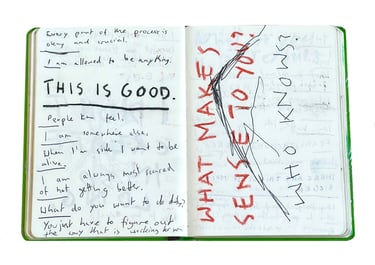 Every part of the process is
okay and crucial.
I am allowed to be anything.
THIS IS GOOD.
People can feel.
I am somewhere else.
When I'm side I want to be
alive.
I am always most scared
of not getting better.
What do you want to do today?
You just have to figure out
the way that is working for
WHAT MAKES
SENSE TO YOU?
WHO KNOWS?